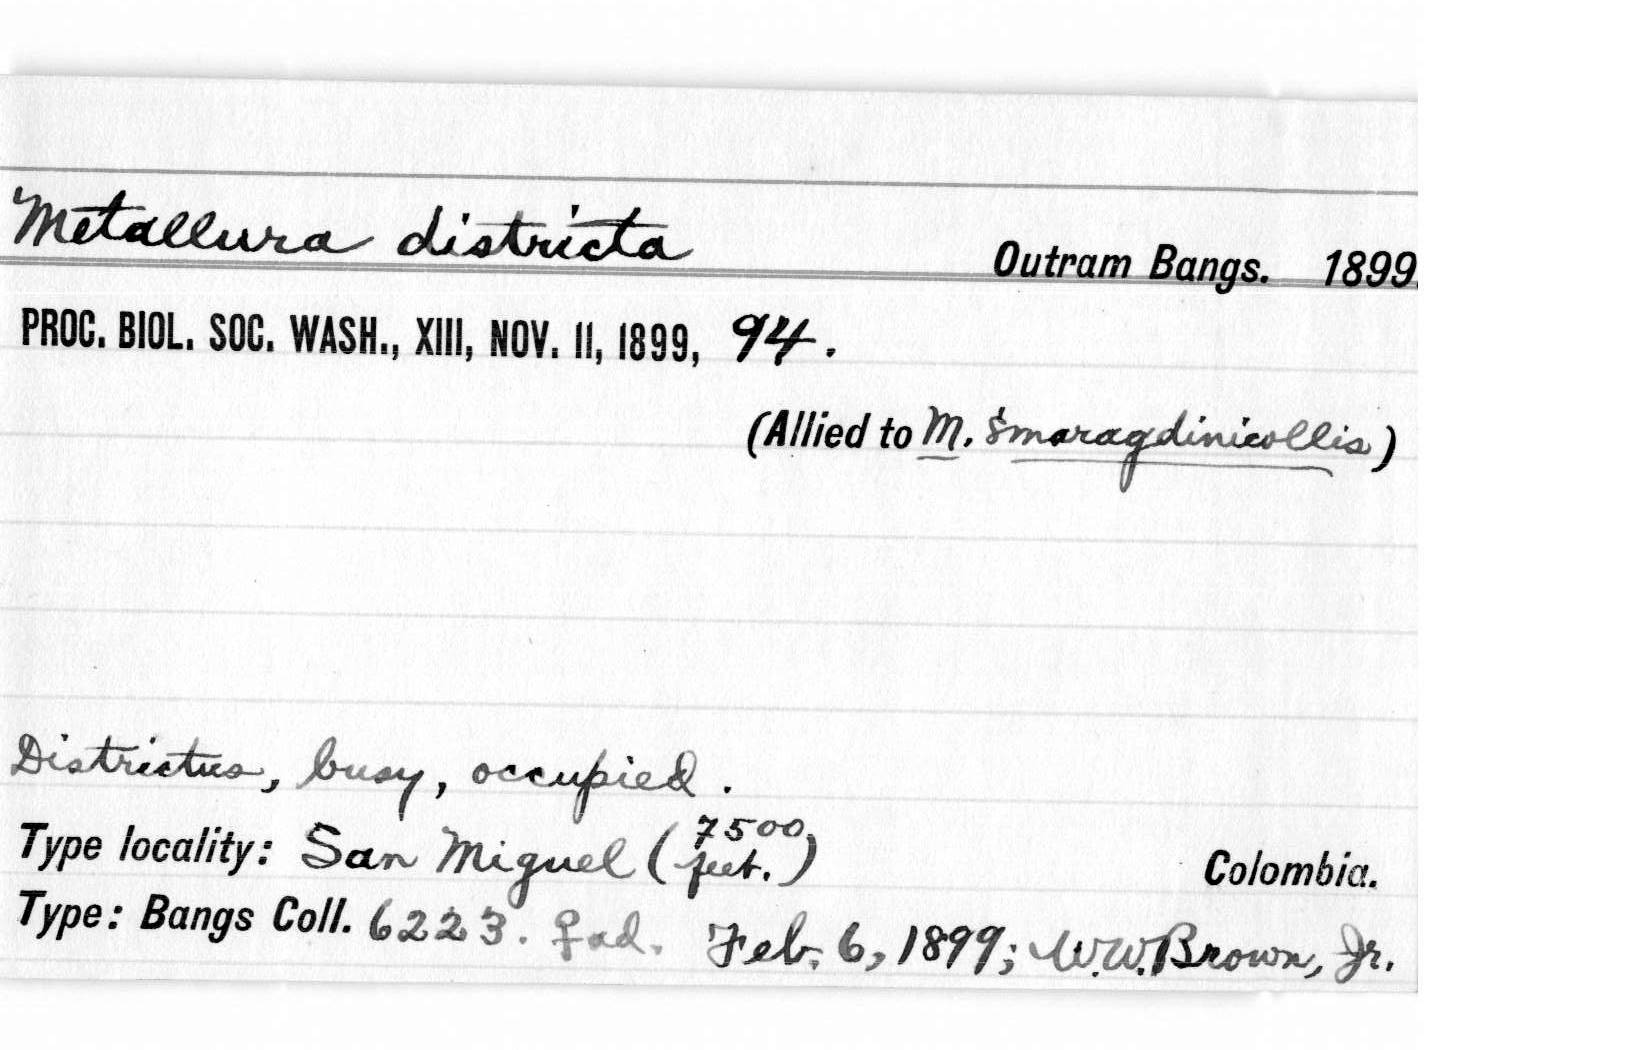 Metallura districta Outram Bangs. 1899.
PROC. BIOL. SOC. WASH., XIII, NOV. 11, 1899, 94.
(Allied to M. smaragdinicollis)
Districtus, busy, occupied.
Type locality: San Miguel (7500 feet.) Colombia.
Type: Bangs Coll. 6223. ♀ad. Feb. 6, 1899; W.W. Brown, Jr.